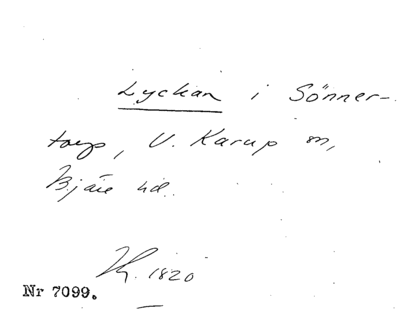 Lyckan i Sönner-
torp, V. Karup sn,
Bjäre hd.
1820
Nr 7099.